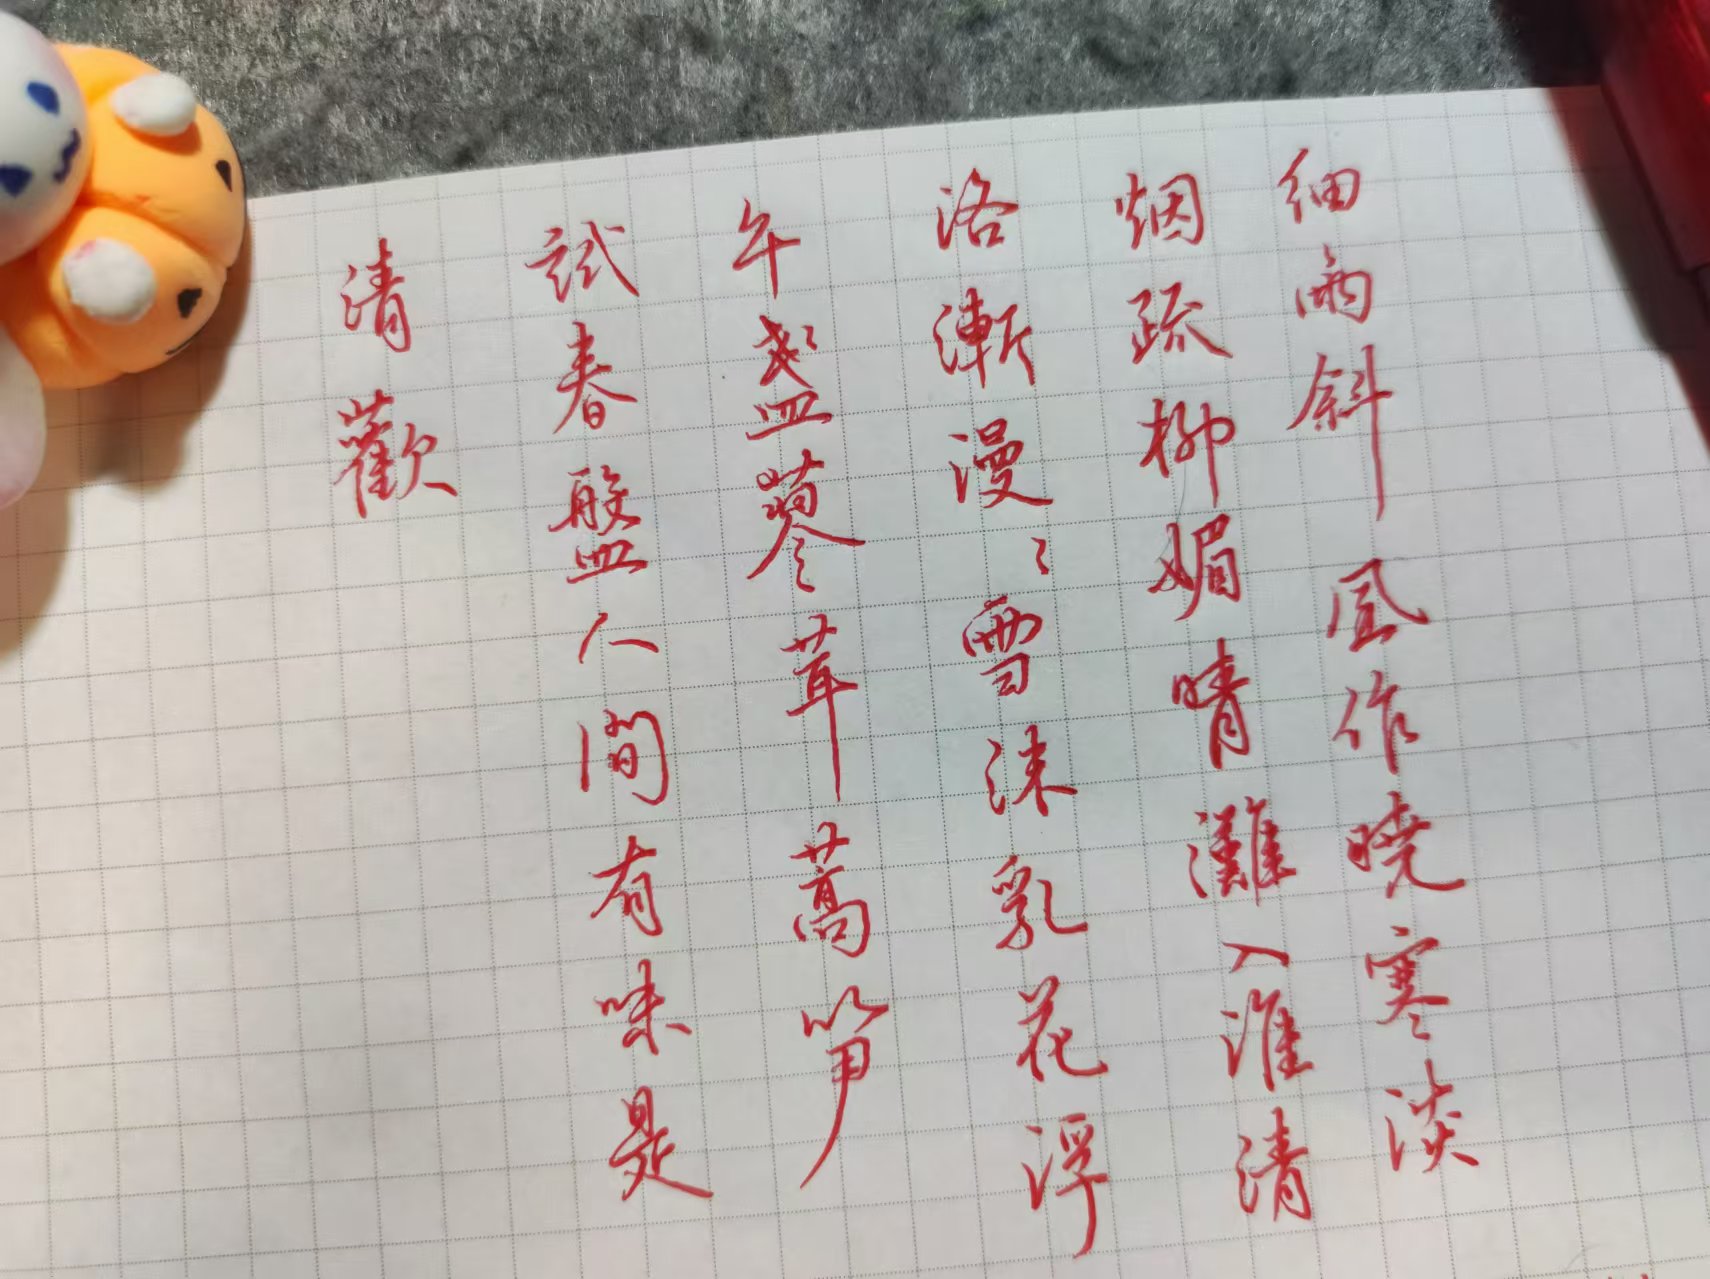 細雨斜風作曉寒淡
烟疏柳媚晴灘入淮清
洛漸漫〻雪沫乳花浮
午盏蓼茸蒿笋
試春盤人間有味是
清歡